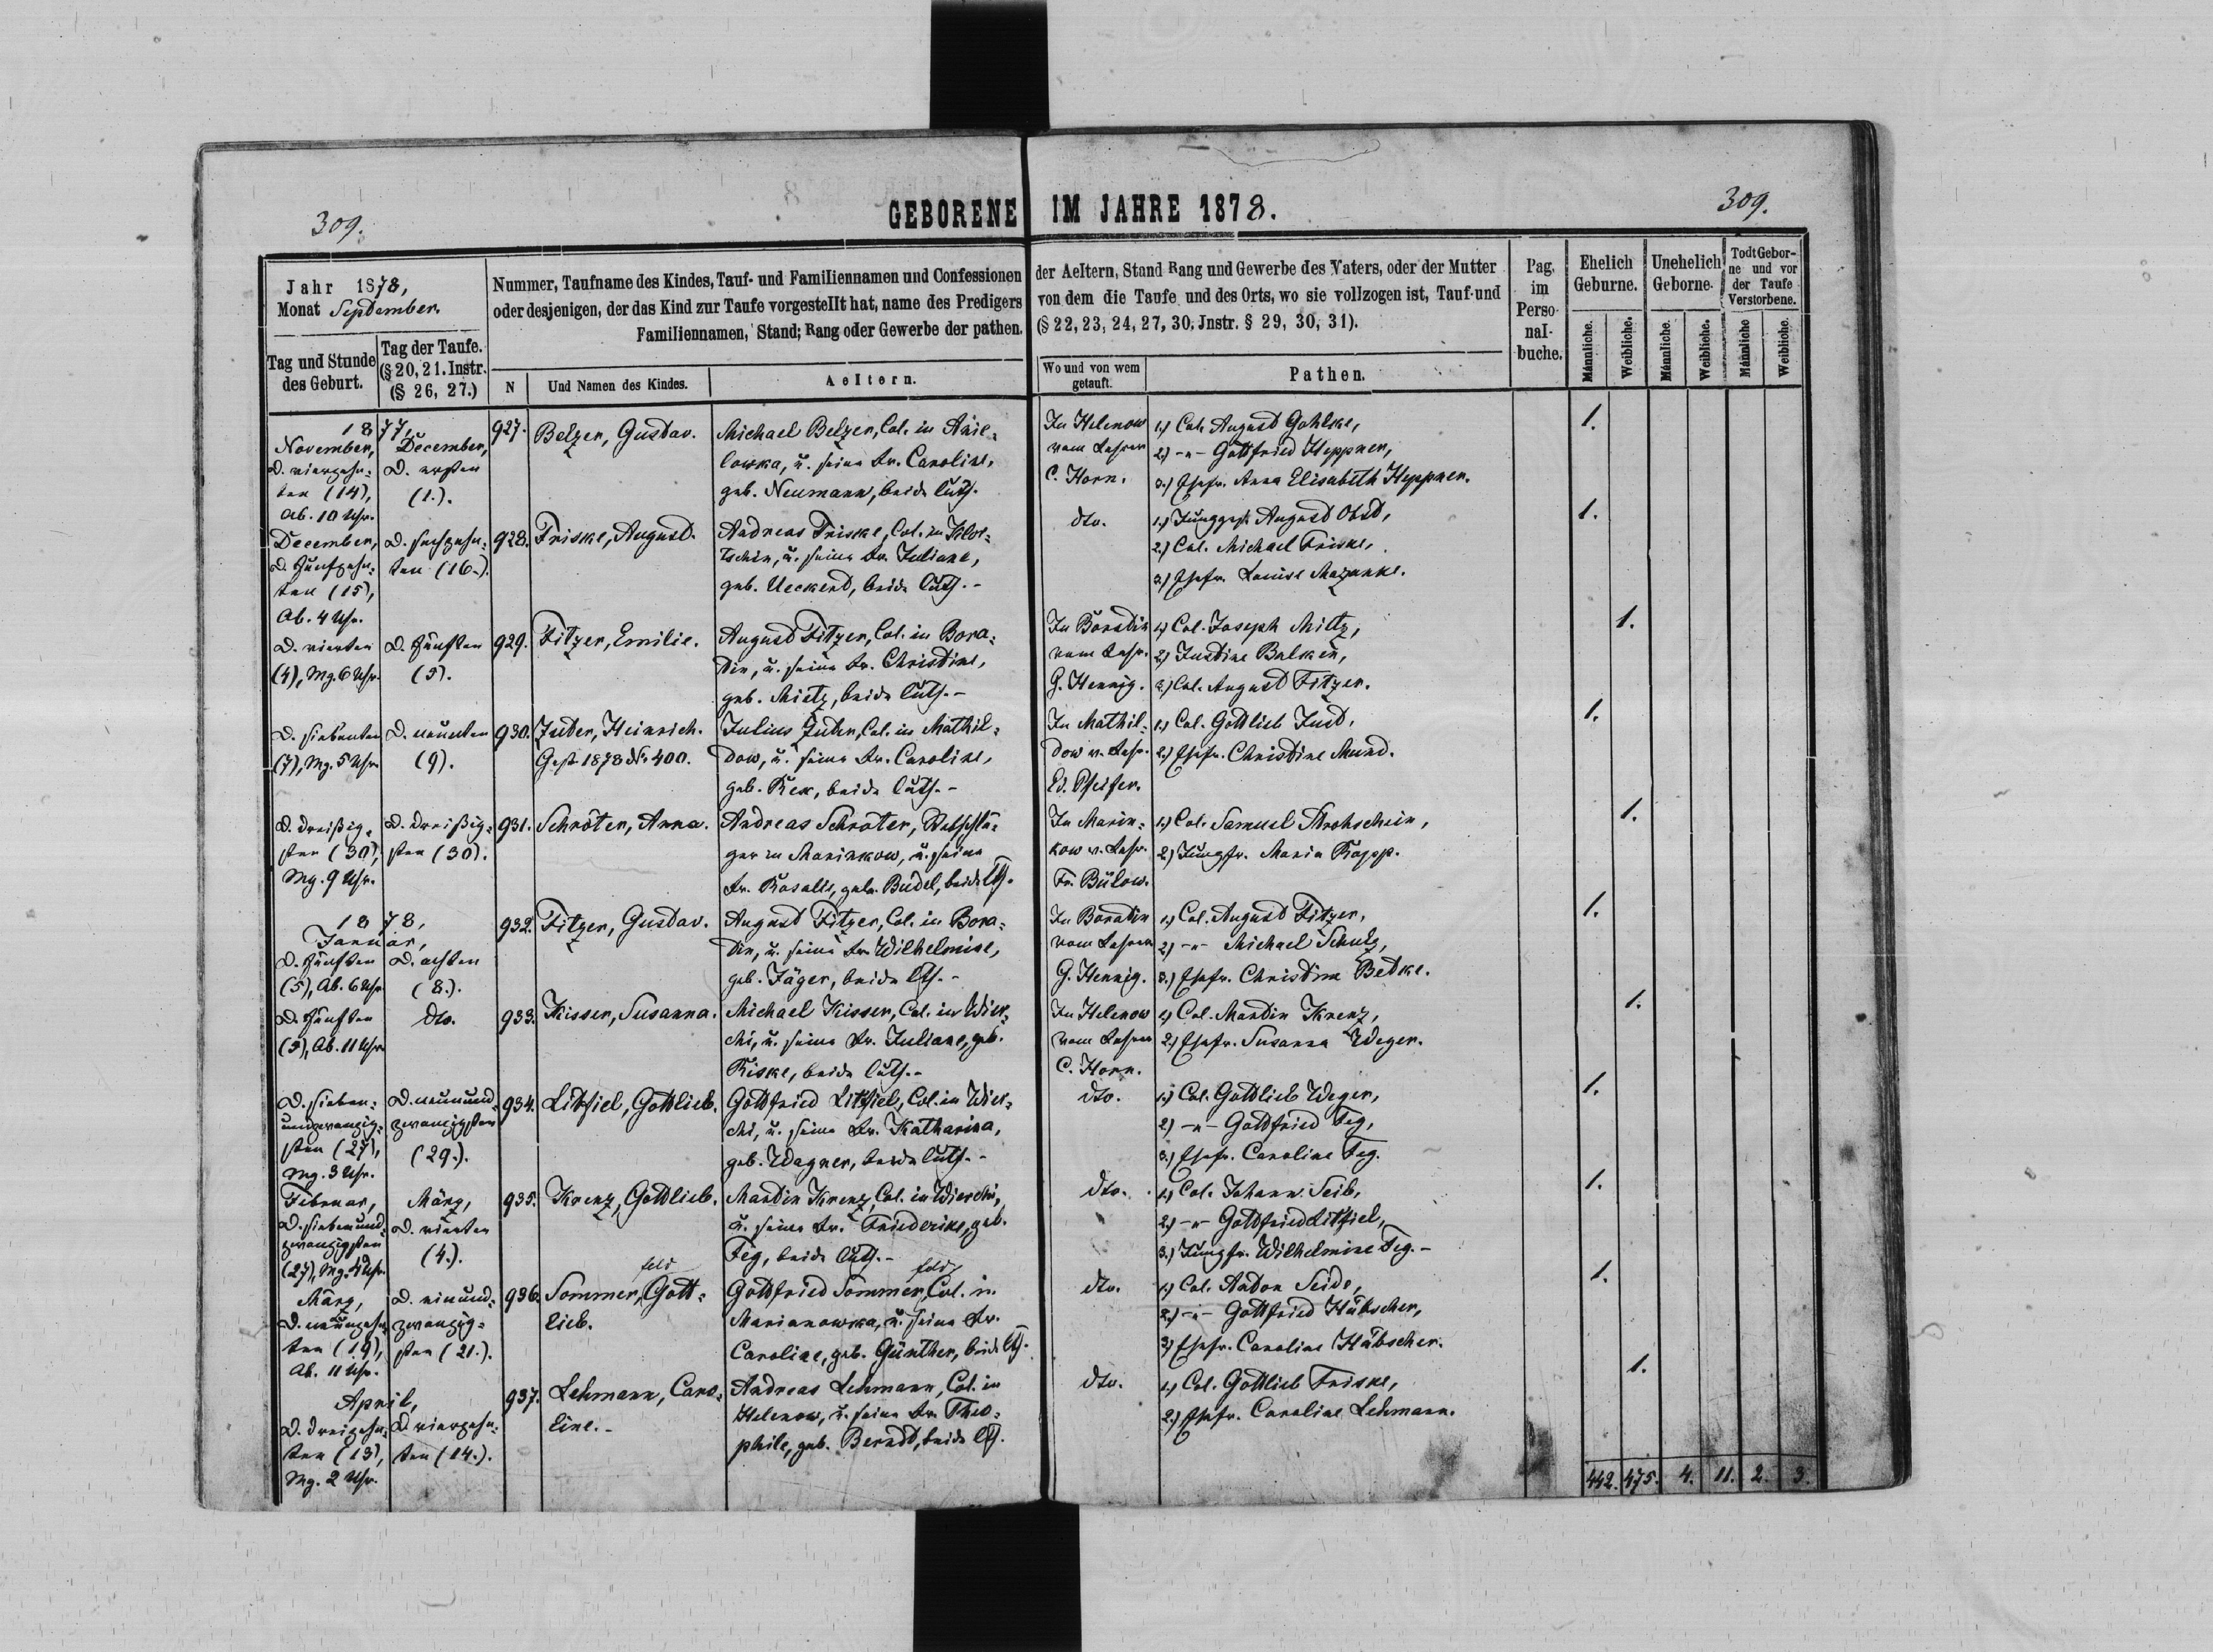 309.
GEBORENE IM JAHRE 1878.
309.
Jahr 1878,
Monat September.
Tag und Stunde
des Geburt.
Tag der Taufe.
(§ 20, 21. Instr.
(§ 26, 27.)
Nummer, Taufname des Kindes, Tauf- und Familiennamen und Confessionen
oder desjenigen, der das Kind zur Taufe vorgestellt hat, name des Predigers
Familiennamen, Stand; Rang oder Gewerbe der pathen.
N
Und Namen des Kindes.
Aeltern.
der Aeltern, Stand Rang und Gewerbe des Vaters, oder der Mutter
von dem die Taufe und des Orts, wo sie vollzogen ist, Tauf-und
(§ 22, 23, 24, 27, 30. Jnstr. § 29, 30, 31).
Wo und von wem
getauft.
Pathen.
Pag.
im
Perso-
nal-
buche.
Ehelich
Geburne.
Männliche.
Weibliche.
Unehelich
Geborne.
Männliche.
Weibliche.
Todt Gebor-
ne und vor
der Taufe
Verstorbene.
Männliche
Weibliche.
1877,
November,
d. vierzehn-
ten (14),
Ab. 10 Uhr.
December,
d. ersten
(1.).
927.
Belzer, Gustav.
Michael Belzer, Col. in
lowka, u. seine Fr. Caroline,
geb. Neumann, beide luth.
In Helenow
vom Lehrer
C. Horn.
1.) Col. August Gohlke,
2.) -"- Gottfried Heppner,
3.) Ehefr. Anna Elisabeth Heppner.
1.
December,
d. fünfzehn-
ten (15),
Ab. 4 Uhr.
d. sechzehn-
ten (16.).
928.
Friske, August.
Andreas Friske, Col. in
tschin, u. seine Fr. Juliane,
geb. Ueckert, beide luth.-
dto.
1.) Junggs. August Obst,
2.) Col. Michael Friske,
3.) Ehefr. Louise Mazanke.
1.
d. vierten
(4), Mg. 6 Uhr.
d. fünften
(5).
929.
Fitzer, Emilie.
August Fitzer, Col. in Bora-
tin, u. seine Fr. Christine,
geb. Mietz, beide luth.-
In Boratin
vom Lehr.
G. Hennig.
1.) Col. Joseph Miltz,
2.) Justine Balken,
3.) Col. August Fitzer.
1.
d. siebenten
(7), Mg. 5 Uhr.
d. neunten
(9).
930.
Juder, Heinrich.
Gest. 1878 No. 400.
Julius Juder, Col. in Mathil-
dow, u. seine Fr. Caroline,
geb. Rek, beide luth.-
In Mathil-
dow v. Lehr.
Ed. Pfeifer.
1.) Col. Gottlieb Just,
2.) Ehefr. Christine Mund.
1.
d. dreißig-
sten (30),
Mg. 9 Uhr.
d. dreißig-
sten (30).
931.
Schröter, Anna.
Andreas Schröter,
ger in Marinkow, u. seine
Fr. Rosalie, geb. Budel, beide lth.
In Marin-
kow v. Lehr.
Fr. Bülow.
1.) Col. Samuel Strohschein,
2.) Jungfr. Maria Rapp.
1.
1878,
Januar,
d. fünften
(5), Ab. 6 Uhr
d. achten
(8.).
932.
Fitzer, Gustav.
August Fitzer, Col. in Bora-
tin, u. seine Fr. Wilhelmine,
geb. Jäger, beide lth.-
In Boratin
vom Lehrer
G. Hennig.
1.) Col. August Fitzer,
2.) -"- Michael Schulz,
3.) Ehefr. Christine Betke.
1.
d. fünften
(5), Ab. 11 Uhr
dto.
933.
Kisser, Susanna.
Michael Kisser, Col. in Wier-
chi, u. seine Fr. Juliane, geb.
Riske, beide luth.-
In Helenow
vom Lehrer
C. Horn.
1.) Col. Martin Krenz,
2.) Ehefr. Susanna Weger.
1.
d. sieben-
undzwanzig-
sten (27),
Mg. 3 Uhr.
d. neunund-
zwanzigsten
(29.).
934.
Litfiel, Gottlieb.
Gottfried Litfiel, Col. in Wier-
chi, u. seine Fr. Katharina,
geb. Wagner, beide luth.-
dto.
1.) Col. Gottlieb Weger,
2.) -"- Gottfried Feg,
3.) Ehefr. Caroline Feg.
1.
Februar,
d. siebenund-
zwanzigsten
(27), Mg. 4 Uhr.
März,
d. vierten
(4.).
935.
Krenz, Gottlieb.
Martin Krenz, Col. in Wierchi,
u. seine Fr. Friederike, geb.
Feg, beide luth.-
dto.
1.) Col. Johann Seib,
2.) -"- Gottfried Litfiel,
3.) Jungfr. Wilhelmine Feg.-
1.
März,
d. neunzehn-
ten (19),
Ab. 11 Uhr.
d. einund-
zwanzig-
sten (21.).
936.
feld
Sommer, Gott-
lieb.
feld
Gottfried Sommer, Col. in
Marianowka, u. seine Fr.
Caroline, geb. Günther, beide lth.
dto.
1.) Col. Anton Seide,
2.) -"- Gottfried Hübscher,
3.) Ehefr. Caroline Hübscher.
1.
April,
d. dreizehn-
ten (13),
Mg. 2 Uhr.
d. vierzehn-
ten (14.).
937.
Lehmann, Caro-
line.-
Andreas Lehmann, Col. in
Helenow, u. seine Fr. Theo-
phile, geb. Berndt, beide lth.
dto.
1.) Col. Gottlieb Friske,
2.) Ehefr. Caroline Lehmann.
1.
442. 475. 4. 11. 2. 3.